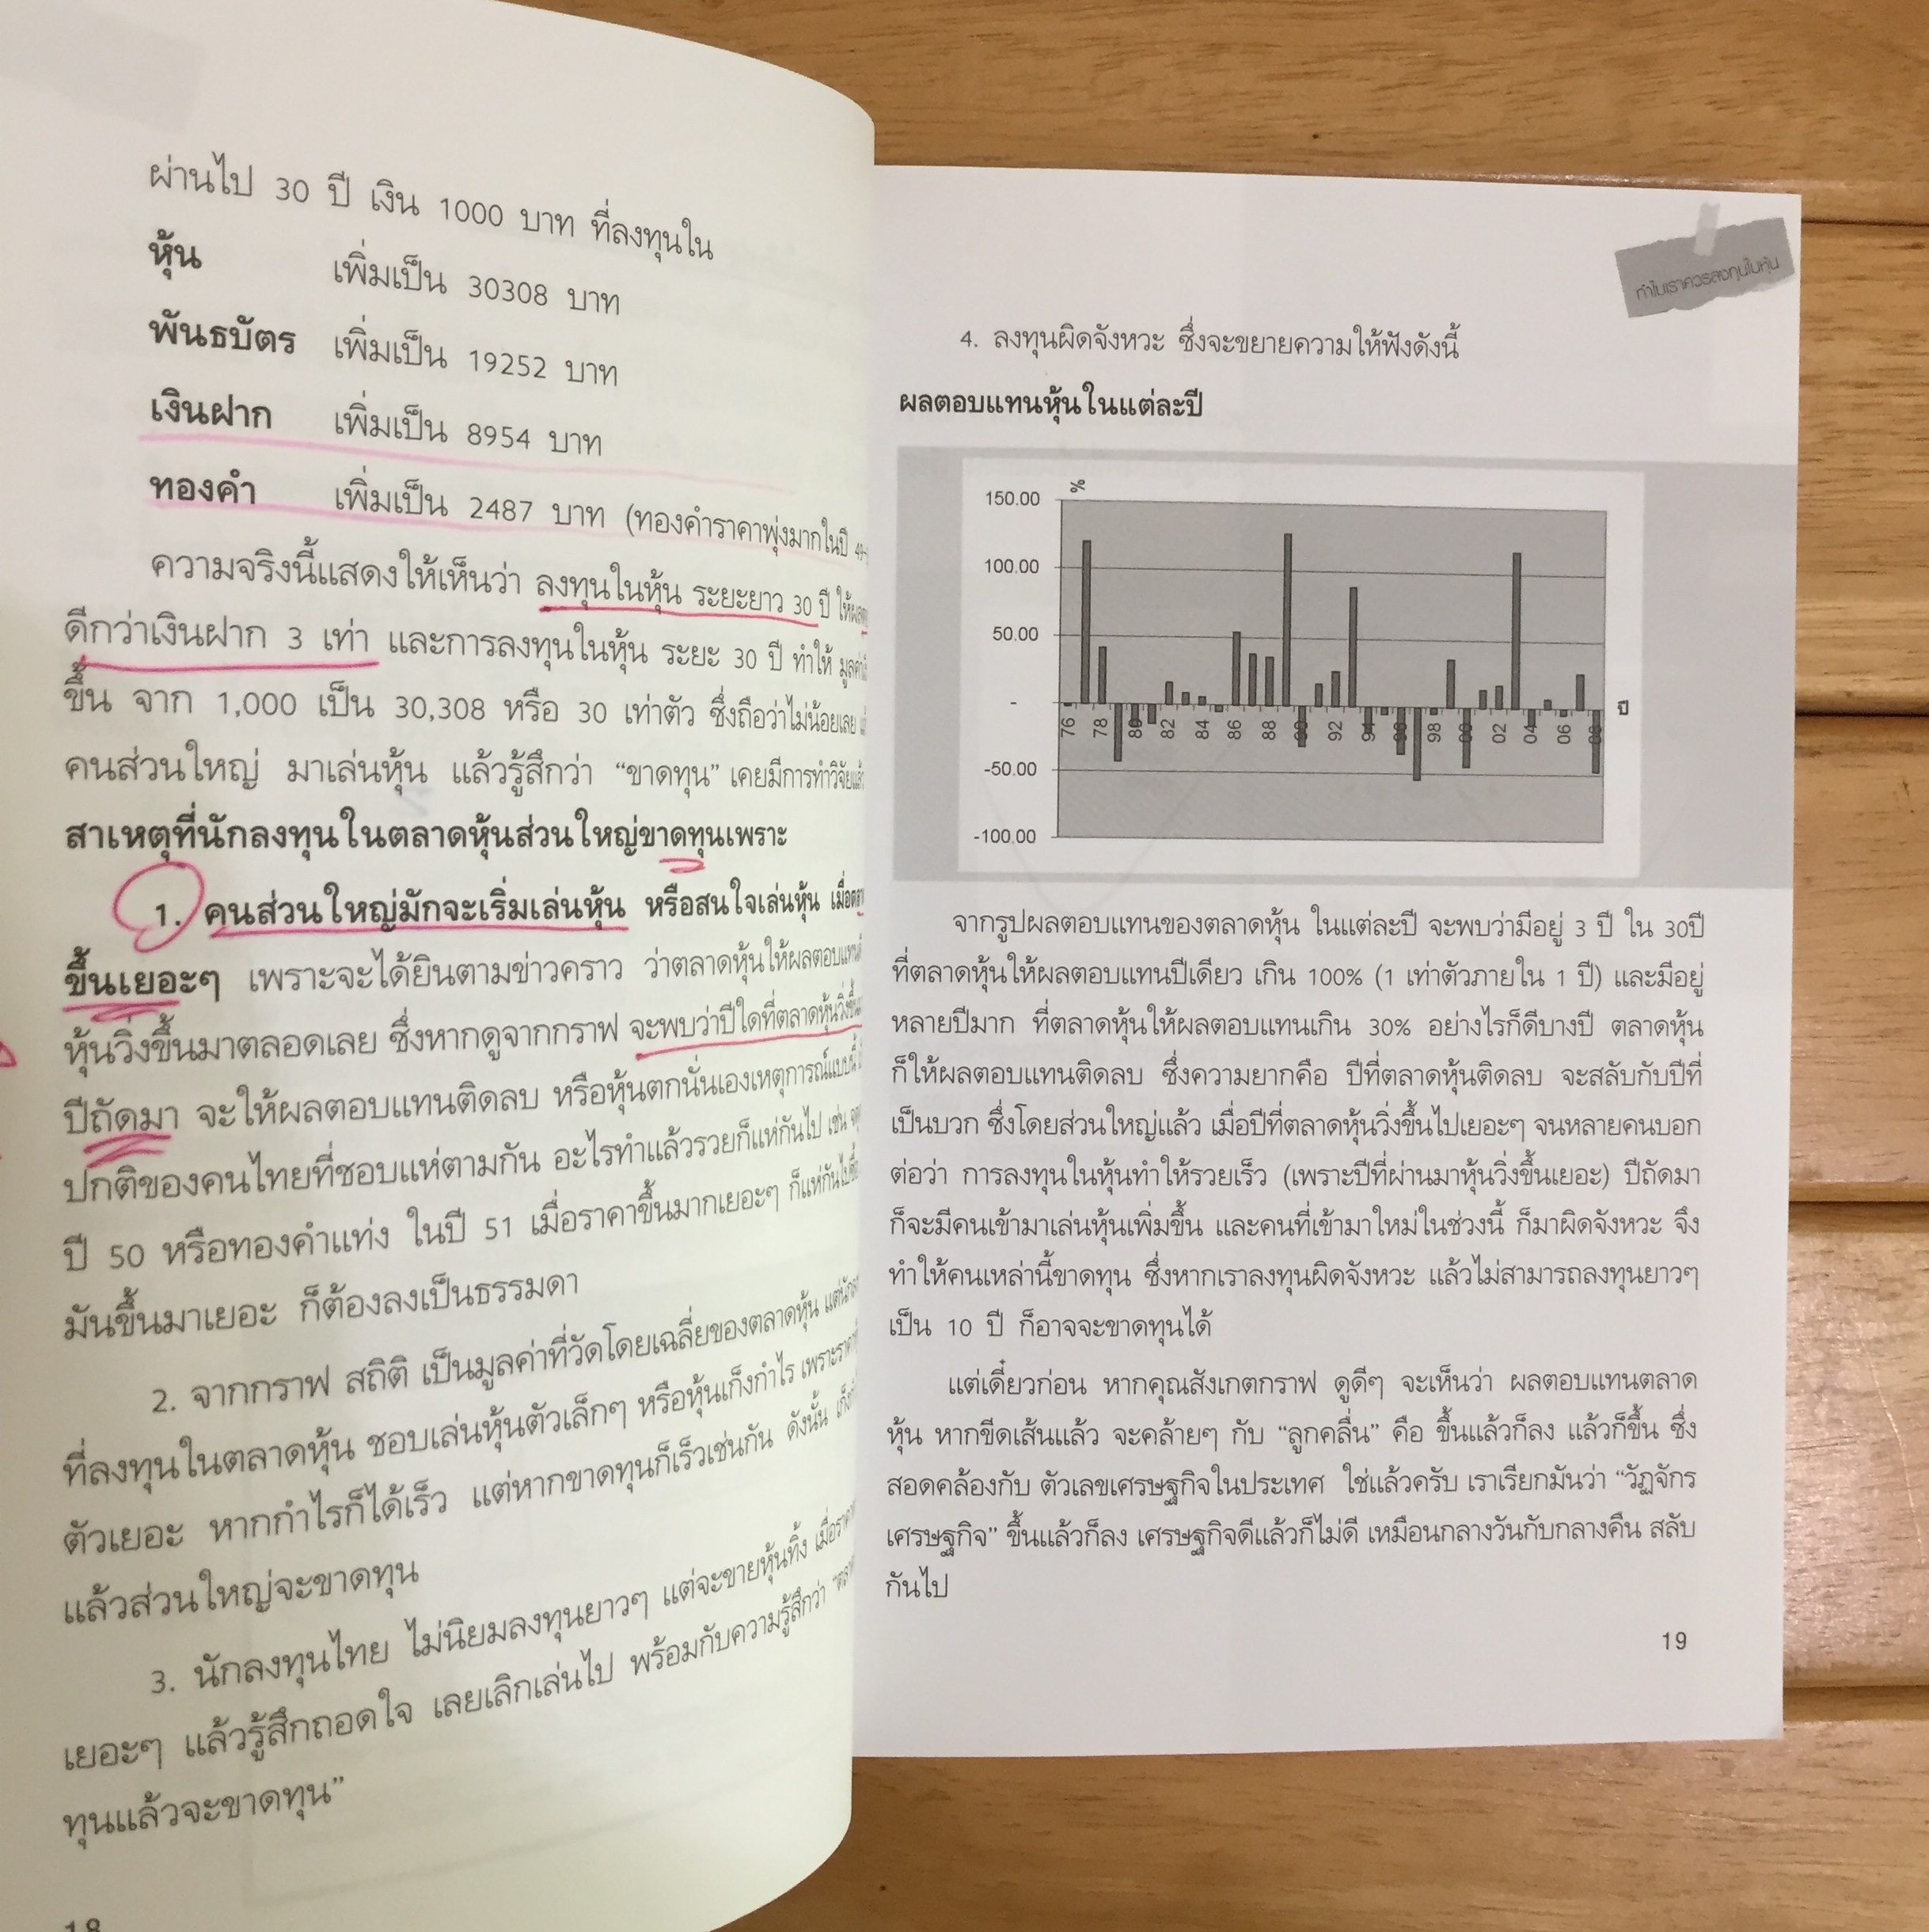 ผ่านไป 30 ปี เงิน 1000 บาท ที่ลงทุนใน
หุ้น เพิ่มเป็น 30308 บาท
พันธบัตร เพิ่มเป็น 19252 บาท
เงินฝาก เพิ่มเป็น 8954 บาท
ทองคำ เพิ่มเป็น 2487 บาท (ทองคำราคาพุ่งมากในปี
ความจริงนี้แสดงให้เห็นว่า ลงทุนในหุ้น ระยะยาว 30 ปี
ดีกว่าเงินฝาก 3 เท่า และการลงทุนในหุ้น ระยะ 30 ปี ทำให้
ขึ้น จาก 1,000 เป็น 30,308 หรือ 30 เท่าตัว ซึ่งถือว่าไม่น้อยเลย
คนส่วนใหญ่ มาเล่นหุ้น แล้วรู้สึกว่า “ขาดทุน” เคยมีการทำวิจัย
สาเหตุที่นักลงทุนในตลาดหุ้นส่วนใหญ่ขาดทุนเพราะ
1. คนส่วนใหญ่มักจะเริ่มเล่นหุ้น หรือสนใจเล่นหุ้น
ขึ้นเยอะๆ เพราะจะได้ยินตามข่าวคราว ว่าตลาดหุ้นให้ผลตอบแทน
หุ้นวิ่งขึ้นมาตลอดเลย ซึ่งหากดูจากกราฟ จะพบว่าปีใดที่ตลาดหุ้นวิ่งขึ้น
ปีถัดมา จะให้ผลตอบแทนติดลบ หรือหุ้นตกนั่นเองเหตุการณ์แบบนี้
ปกติของคนไทยที่ชอบแห่ตามกัน อะไรทำแล้วรวยก็แห่กันไป เช่น
ปี 50 หรือทองคำแท่ง ในปี 51 เมื่อราคาขึ้นมากเยอะๆ ก็แห่กันไป
มันขึ้นมาเยอะ ก็ต้องลงเป็นธรรมดา
2. จากกราฟ สถิติ เป็นมูลค่าที่วัดโดยเฉลี่ยของตลาดหุ้น
ที่ลงทุนในตลาดหุ้น ชอบเล่นหุ้นตัวเล็กๆ หรือหุ้นเก็งกำไร
ตัวเยอะ หากกำไรก็ได้เร็ว แต่หากขาดทุนก็เร็วเช่นกัน ดังนั้น
แล้วส่วนใหญ่จะขาดทุน
3. นักลงทุนไทย ไม่นิยมลงทุนยาวๆ แต่จะขายหุ้นทิ้ง
เยอะๆ แล้วรู้สึกถอดใจ เลยเลิกเล่นไป พร้อมกับความรู้สึกว่า
ทุนแล้วจะขาดทุน”
18
ทำไมเราควรลงทุนในหุ้น
4. ลงทุนผิดจังหวะ ซึ่งจะขยายความให้ฟังดังนี้
ผลตอบแทนหุ้นในแต่ละปี
%
150.00
100.00
50.00
-
-50.00
-100.00
76 78 80 82 84 86 88 90 92 94 96 98 00 02 04 06 08
ปี
จากรูปผลตอบแทนของตลาดหุ้น ในแต่ละปี จะพบว่ามีอยู่ 3 ปี ใน 30ปี
ที่ตลาดหุ้นให้ผลตอบแทนปีเดียว เกิน 100% (1 เท่าตัวภายใน 1 ปี) และมีอยู่
หลายปีมาก ที่ตลาดหุ้นให้ผลตอบแทนเกิน 30% อย่างไรก็ดีบางปี ตลาดหุ้น
ก็ให้ผลตอบแทนติดลบ ซึ่งความยากคือ ปีที่ตลาดหุ้นติดลบ จะสลับกับปีที่
เป็นบวก ซึ่งโดยส่วนใหญ่แล้ว เมื่อปีที่ตลาดหุ้นวิ่งขึ้นไปเยอะๆ จนหลายคนบอก
ต่อว่า การลงทุนในหุ้นทำให้รวยเร็ว (เพราะปีที่ผ่านมาหุ้นวิ่งขึ้นเยอะ) ปีถัดมา
ก็จะมีคนเข้ามาเล่นหุ้นเพิ่มขึ้น และคนที่เข้ามาใหม่ในช่วงนี้ ก็มาผิดจังหวะ จึง
ทำให้คนเหล่านี้ขาดทุน ซึ่งหากเราลงทุนผิดจังหวะ แล้วไม่สามารถลงทุนยาวๆ
เป็น 10 ปี ก็อาจจะขาดทุนได้
แต่เดี๋ยวก่อน หากคุณสังเกตกราฟ ดูดีๆ จะเห็นว่า ผลตอบแทนตลาด
หุ้น หากขีดเส้นแล้ว จะคล้ายๆ กับ “ลูกคลื่น” คือ ขึ้นแล้วก็ลง แล้วก็ขึ้น ซึ่ง
สอดคล้องกับ ตัวเลขเศรษฐกิจในประเทศ ใช่แล้วครับ เราเรียกมันว่า “วัฏจักร
เศรษฐกิจ” ขึ้นแล้วก็ลง เศรษฐกิจดีแล้วก็ไม่ดี เหมือนกลางวันกับกลางคืน สลับ
กันไป
19